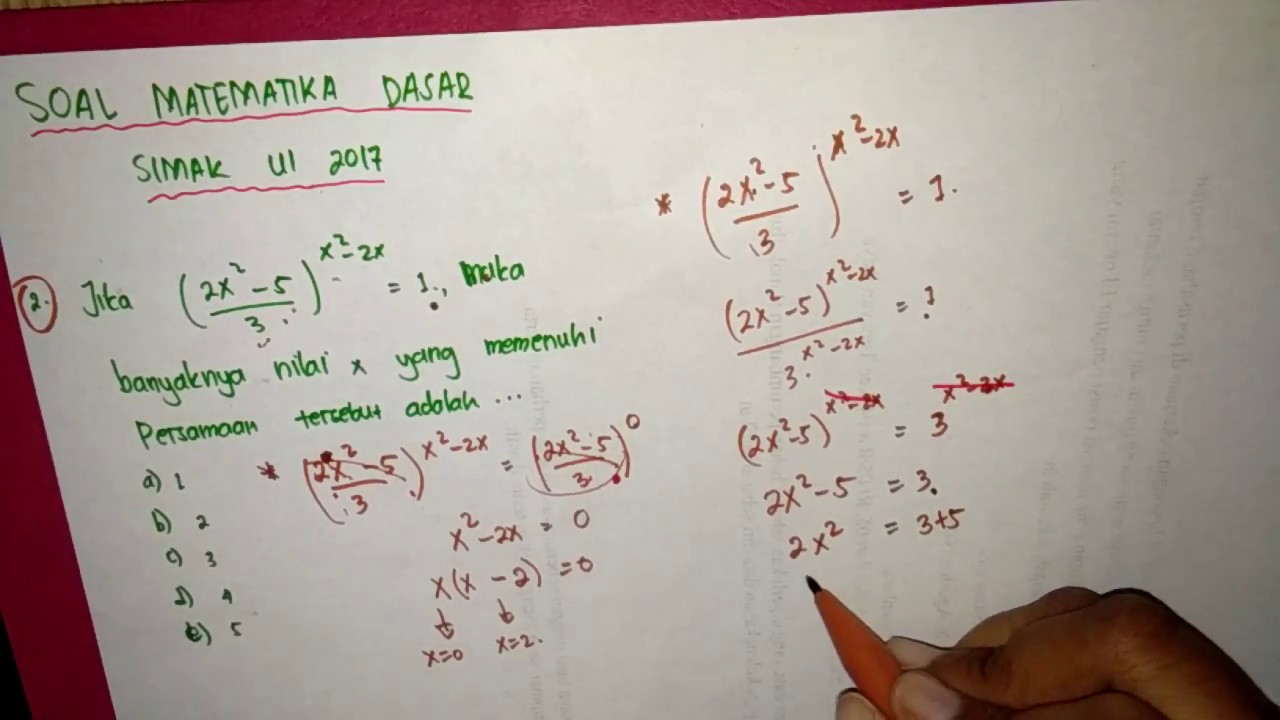 SOAL MATEMATIKA DASAR
SIMAK UI 2017
2. Jika ((2x² - 5)/3)^(x² - 2x) = 1, maka
banyaknya nilai x yang memenuhi
Persamaan tersebut adalah ...
a) 1
b) 2
c) 3
d) 4
e) 5
* ((2x² - 5)/3)^(x² - 2x) = ((2x² - 5)/3)^0
x² - 2x = 0
x(x - 2) = 0
x=0 x=2.
* ((2x² - 5)/3)^(x² - 2x) = 1.
(2x² - 5)^(x² - 2x)/3^(x² - 2x) = 1
(2x² - 5)^(x² - 2x) = 3^(x² - 2x)
2x² - 5 = 3.
2x² = 3+5